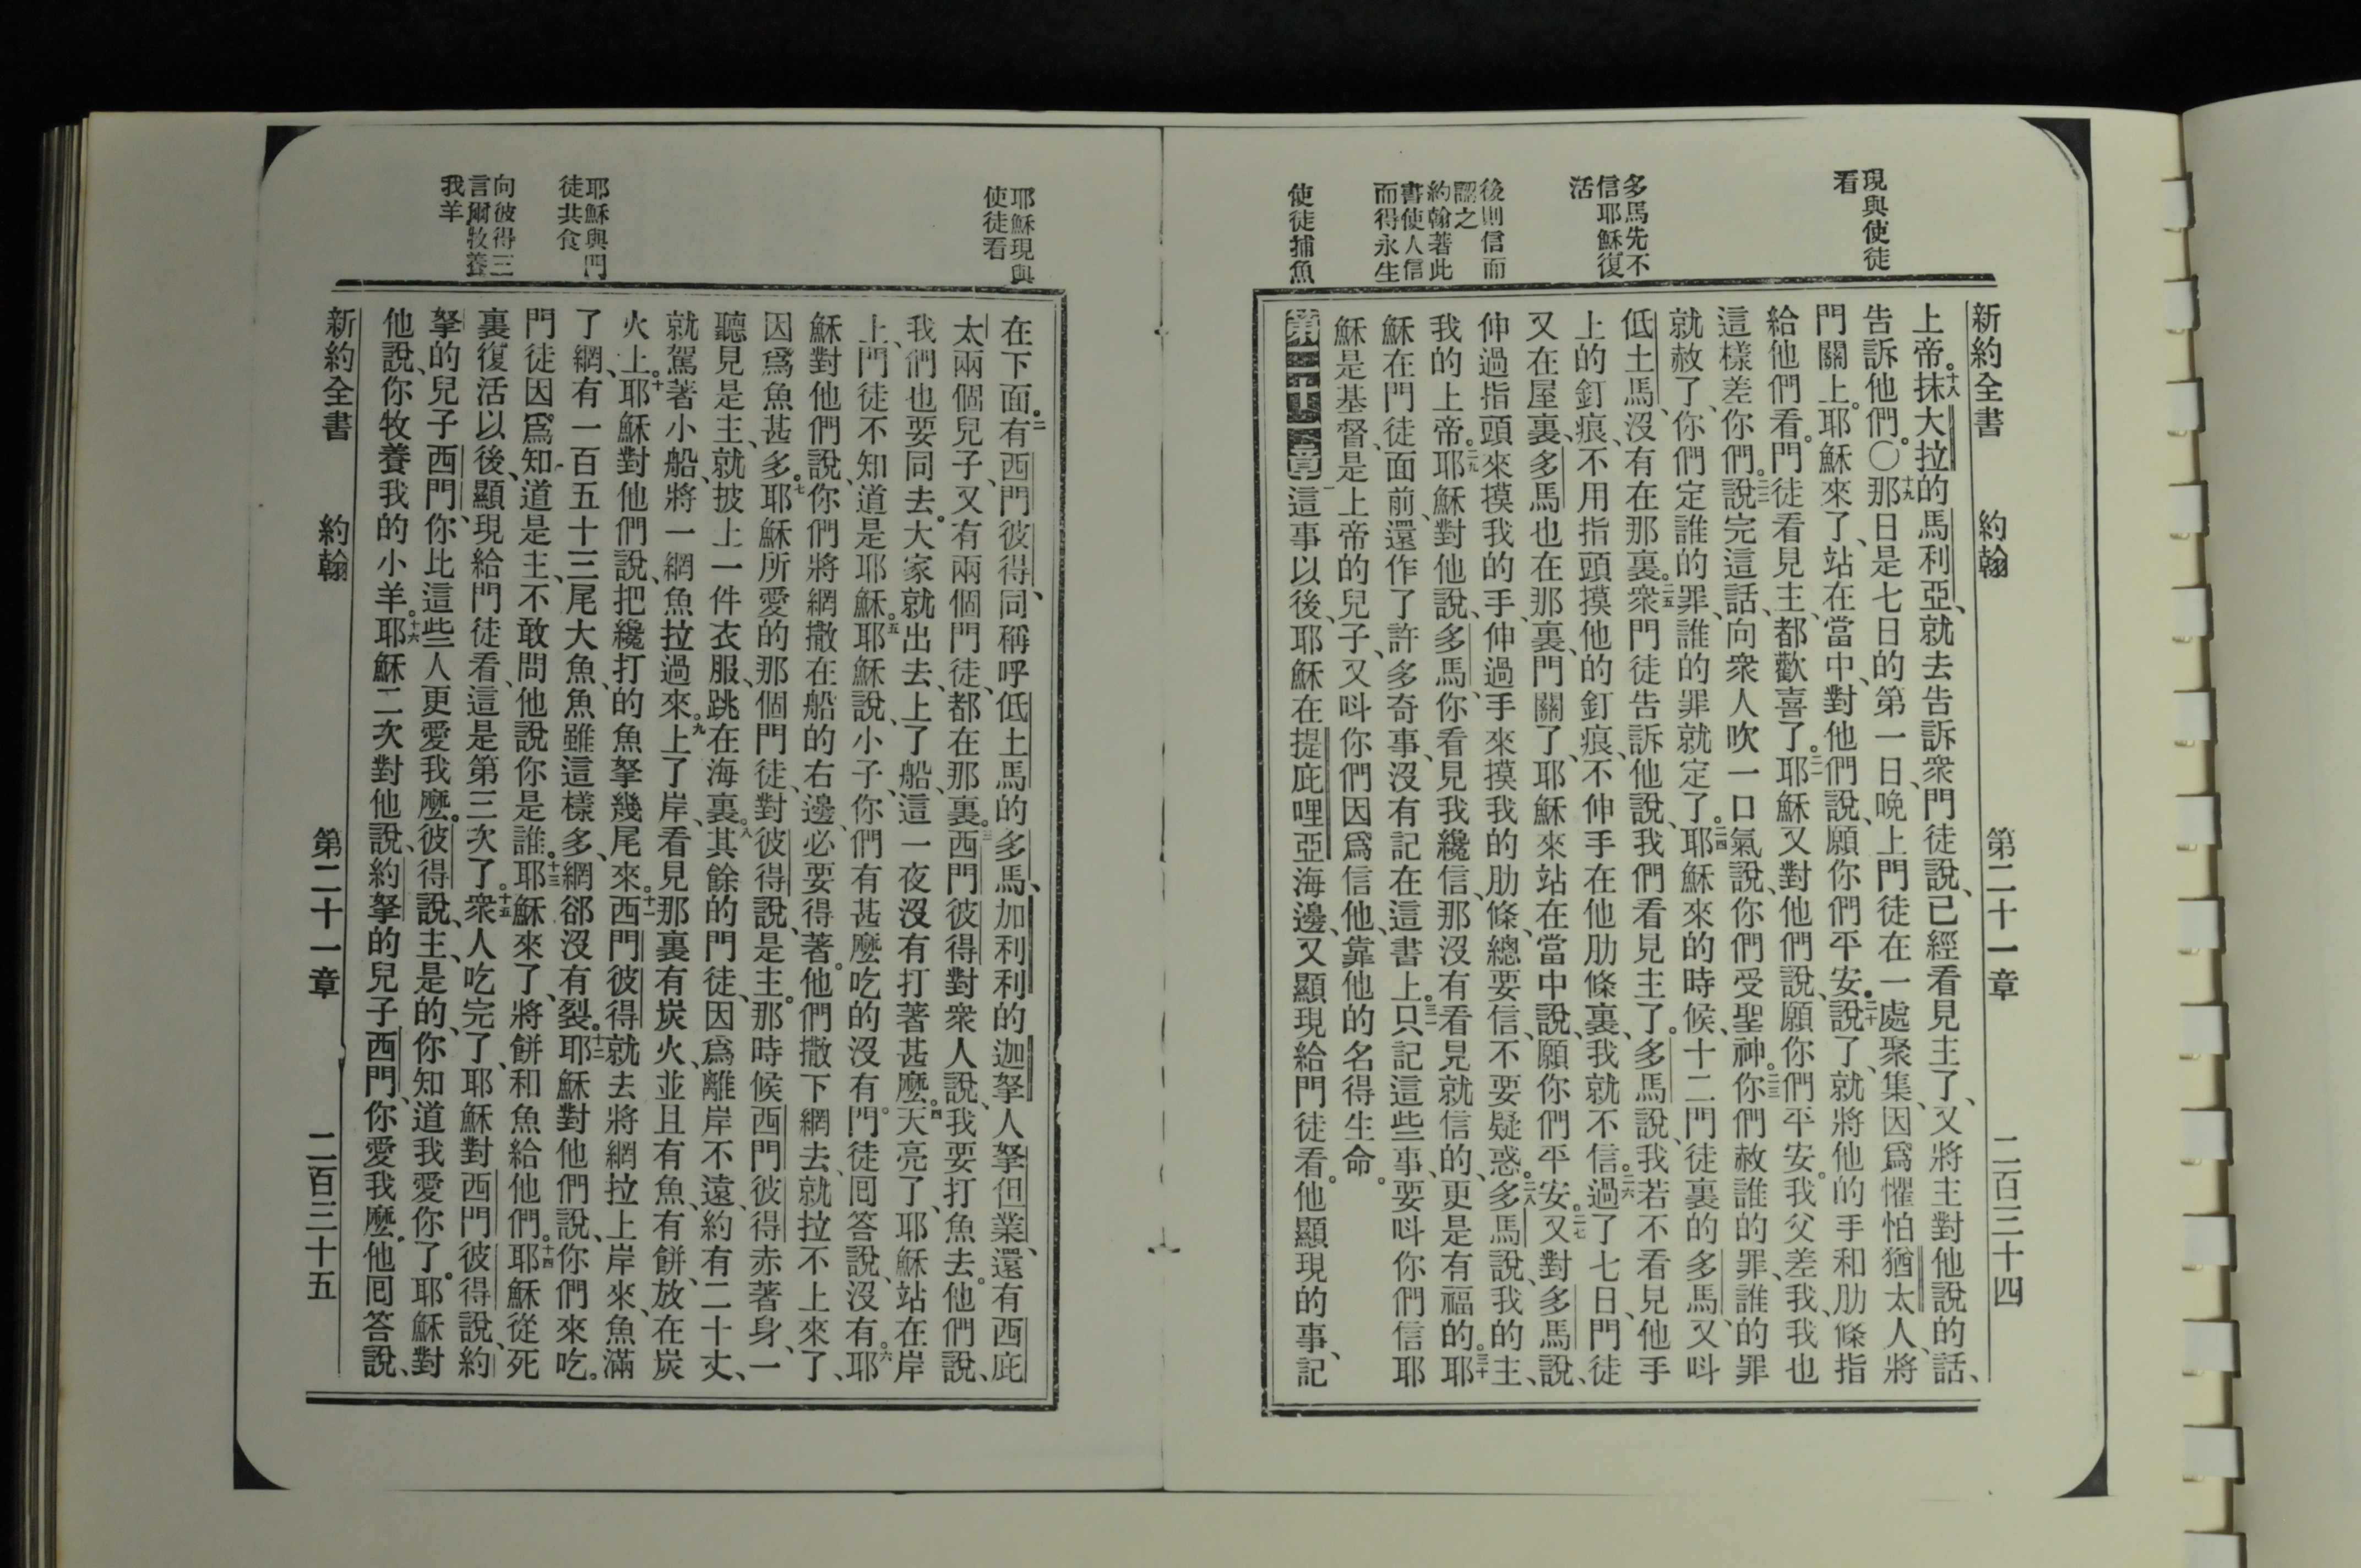 現與使徒
看
多馬先不
信耶穌復
活
後則信而
認之
約翰著此
書使人信
而得永生
使徒捕魚
新約全書 約翰 第二十一章 二百三十四
上帝。十八抹大拉的馬利亞、就去告訴衆門徒說、已經看見主了、又將主對他說的話、
告訴他們。〇十九那日是七日的第一日、晚上門徒在一處聚集、因爲懼怕猶太人、將
門關上。耶穌來了、站在當中、對他們說、願你們平安。二十說了、就將他的手和肋條指
給他們看。門徒看見主、都歡喜了。二一耶穌又對他們說、願你們平安。我父差我、我也
這樣差你們。二二說完這話、向衆人吹一口氣說、你們受聖神。二三你們赦誰的罪、誰的罪
就赦了、你們定誰的罪、誰的罪就定了。二四耶穌來的時候、十二門徒裏的多馬、又呌
低土馬、沒有在那裏。二五衆門徒告訴他說、我們看見主了。多馬說、我若不看見他手
上的釘痕、不用指頭摸他的釘痕、不伸手在他肋條裏、我就不信。二六過了七日、門徒
又在屋裏、多馬也在那裏、門關了、耶穌來站在當中說、願你們平安。二七又對多馬說、
伸過指頭來摸我的手、伸過手來摸我的肋條、總要信、不要疑惑。二八多馬說、我的主、
我的上帝。二九耶穌對他說、多馬、你看見我纔信、那沒有看見就信的、更是有福的。三十耶
穌在門徒面前、還作了許多奇事、沒有記在這書上。三一只記這些事、要呌你們信耶
穌是基督、是上帝的兒子、又呌你們因爲信他、靠他的名得生命。
第二十一章 一這事以後、耶穌在提庇哩亞海邊、又顯現給門徒看。他顯現的事、記
耶穌現與
使徒看
耶穌與門
徒共食
向彼得三
言爾牧養
我羊
在下面。二有西門彼得、同稱呼低土馬的多馬、加利利的迦拏人拏但業、還有西庇
太兩個兒子、又有兩個門徒、都在那裏。三西門彼得對衆人說、我要打魚去。他們說、
我們也要同去。大家就出去、上了船、這一夜沒有打著甚麼。四天亮了、耶穌站在岸
上、門徒不知道是耶穌。五耶穌說、小子、你們有甚麼吃的沒有。門徒囘答說、沒有。六耶
穌對他們說、你們將網撒在船的右邊、必要得著。他們撒下網去、就拉不上來了、
因爲魚甚多。七耶穌所愛的那個門徒、對彼得說、是主。那時候西門彼得赤著身、一
聽見是主、就披上一件衣服、跳在海裏。八其餘的門徒、因爲離岸不遠、約有二十丈、
就駕著小船、將一網魚拉過來。九上了岸、看見那裏有炭火、並且有魚、有餅、放在炭
火上。十耶穌對他們說、把纔打的魚拏幾尾來。十一西門彼得就去將網拉上岸來、魚滿
了網、有一百五十三尾大魚、魚雖這樣多、網郤沒有裂。十二耶穌對他們說、你們來吃。
門徒因爲知道是主、不敢問他說你是誰。十三耶穌來了、將餅和魚給他們。十四耶穌從死
裏復活以後、顯現給門徒看、這是第三次了。十五衆人吃完了、耶穌對西門彼得說、約
拏的兒子西門、你比這些人更愛我麼。彼得說、主、是的、你知道我愛你了。耶穌對
他說、你牧養我的小羊。十六耶穌二次對他說、約拏的兒子西門、你愛我麼。他囘答說、
新約全書 約翰 第二十一章 二百三十五